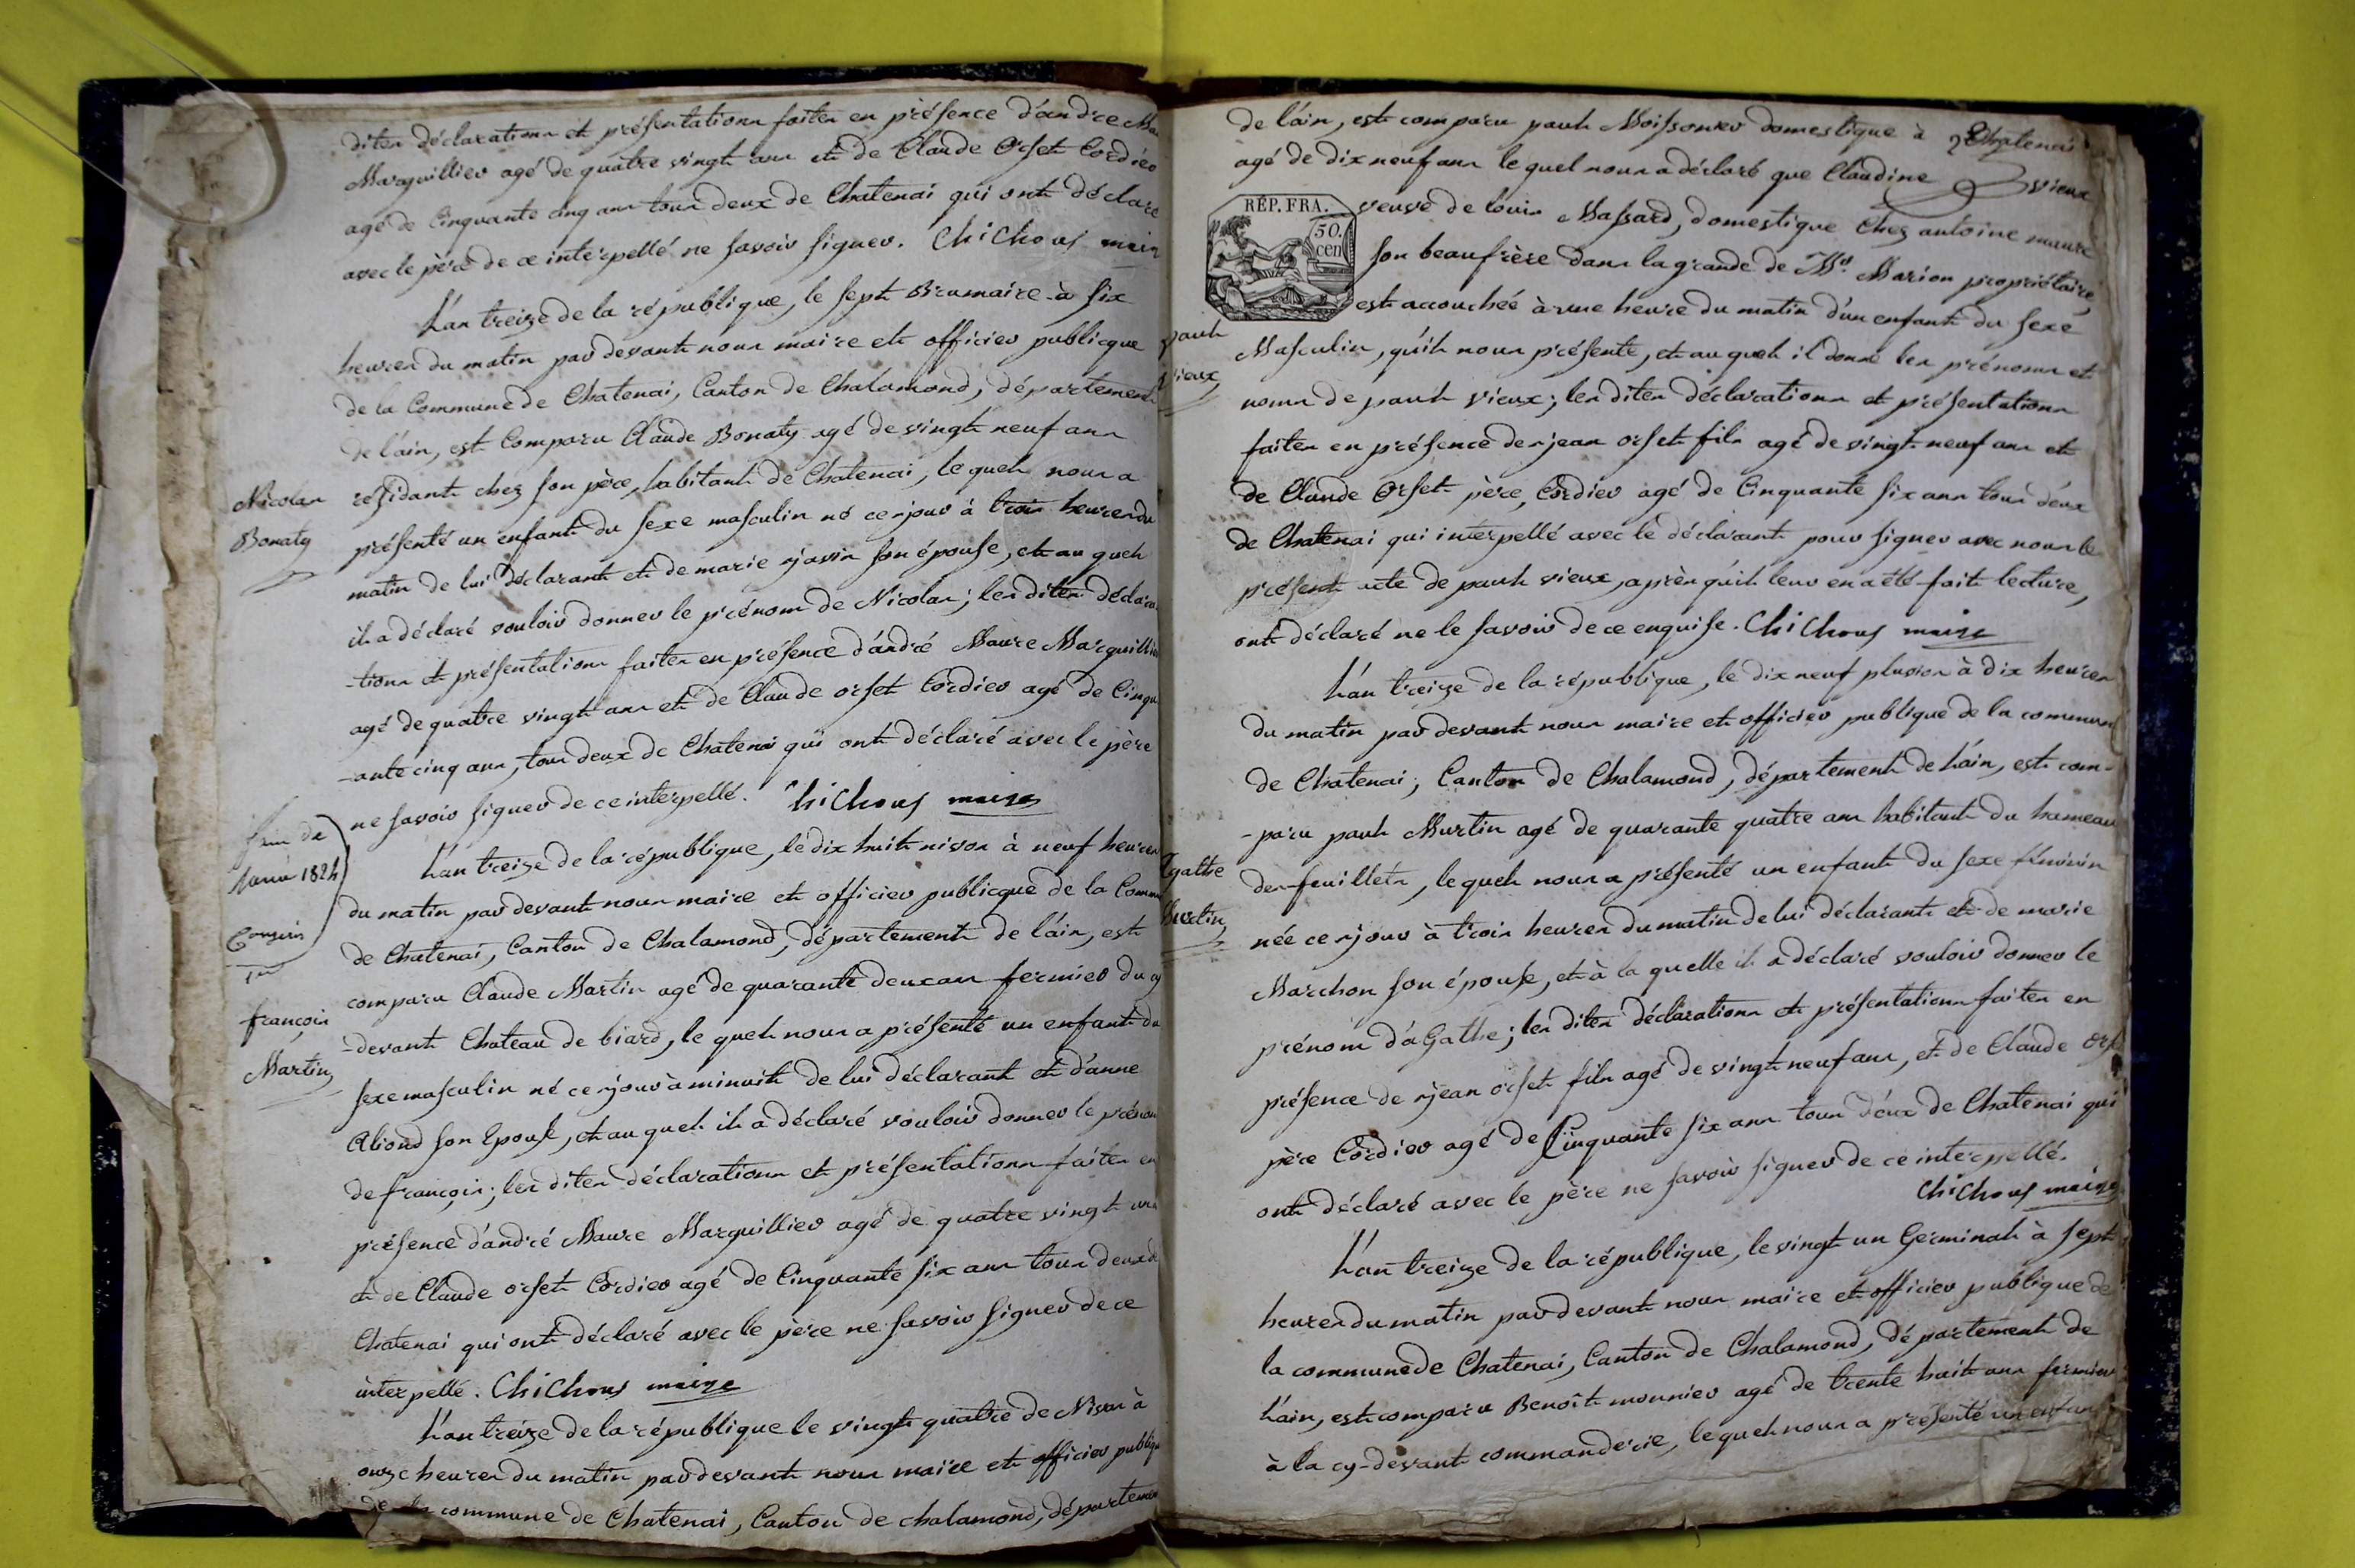 dites déclarations et présentations faites en présence d'andré
Marguillier agé de quatre vingt ans et de Claude Orset Cordier
agé de Cinquante cinq ans tous deux de Chatenai qui ont déclaré
avec le père de ce interpellé ne savoir signer. Chichoux maire
L'an treize de la république, le sept Brumaire à six
heures du matin par devant nous maire et officier publicque
de la Commune de Chatenai, Canton de Chalamond, département
de l'ain, est Comparu Claude Bonaty agé de vingt neuf ans
Nicolas
Bonaty
résidant chez son père, habitant de Chatenai, le quel nous a
présenté un enfant du sexe masculin né ce jour à trois heures du
matin de lui déclarant et de marie javin son épouse, et au quel
il a déclaré vouloir donner le prénom de Nicolas; les dites déclara
-tions et présentations faites en présence d'andré Maure Marguillier
agé de quatre vingt ans et de Claude orset Cordier agé de Cinqu
-ante cinq ans, tous deux de Chatenai qui ont déclaré avec le père
ne savoir signer de ce interpellé. Chichoux maire
1824
L'an treize de la république, le dix huit nivos à neuf heures
du matin par devant nous maire et officier publicque de la Comm
de Chatenai, Canton de Chalamond, département de l'ain, est
françois
Martin
comparu Claude Martin agé de quarante deux ans fermier du cy
-devant Chateau de biard, le quel nous a présenté un enfant du
sexe masculin né ce jour à minuit de lui déclarant et d'anne
Aliond son Epouse, et au quel il a déclaré vouloir donner le prénom
de françois; les dites déclarations et présentations faites en
présence d'andré Maure Marguillier agé de quatre vingt ans
et de Claude orset Cordier agé de Cinquante six ans tous deux de
Chatenai qui ont déclaré avec le père ne savoir signer de ce
interpellé. Chichoux maire
L'an treize de la république le vingt quatre de Nivos à
onze heures du matin par devant nous maire et officier publiqu
de la commune de Chatenai, Canton de chalamond, département
de l'ain, est comparu paul Moissonier domestique à Chatenai
agé de dix neuf ans le quel nous a déclaré que Claudine vieux
RÉP. FRA.
50.
cen
veuve de louis Massard, domestique Chez antoine maure
son beaufrère dans la grande de Mr. Marion propriétaire,
est accouchée à une heure du matin d'un enfant du sexe
paul
vieux
Masculin, qu'il nous présente, et au quel il donne les prénoms et
noms de paul vieux; les dites déclarations et présentations
faites en présence de jean orset fils agé de vingt neuf ans et
de Claude Orset père, Cordier agé de Cinquante six ans tous deux
de Chatenai qui interpellé avec le déclarant pour signer avec nous le
présent acte de paul vieux, après qu'il leur en a été fait lecture,
ont déclaré ne le savoir de ce enquise. Chichoux maire
L'an treize de la république, le dix neuf pluvios à dix heures
du matin par devant nous maire et officier publique de la commune
de Chatenai, Canton de Chalamond, département de l'ain, est com-
-paru paul Murtin agé de quarante quatre ans habitant du hameau
agathe
Murtin
des feuillets, le quel nous a présenté un enfant du sexe féminin
née ce jour à trois heures du matin de lui déclarant et de marie
Marchon son épouse, et à la quelle il a déclaré vouloir donner le
prénom d'aGathe; les dites déclarations et présentations faites en
présence de jean orset fils agé de vingt neuf ans, et de Claude Ors
père Cordier agé de Cinquante six ans tous deux de Chatenai qui
ont déclaré avec le père ne savoir signer de ce interpellé.
Chichoux maire
L'an treize de la république, le vingt un Germinal à sept
heures du matin par devant nous maire et officier publique de
la commune de Chatenai, Canton de Chalamond, département de
l'ain, est comparu Benoît monnier agé de trente huit ans fermier
à la cy-devant commanderie, le quel nous a présenté un enfant